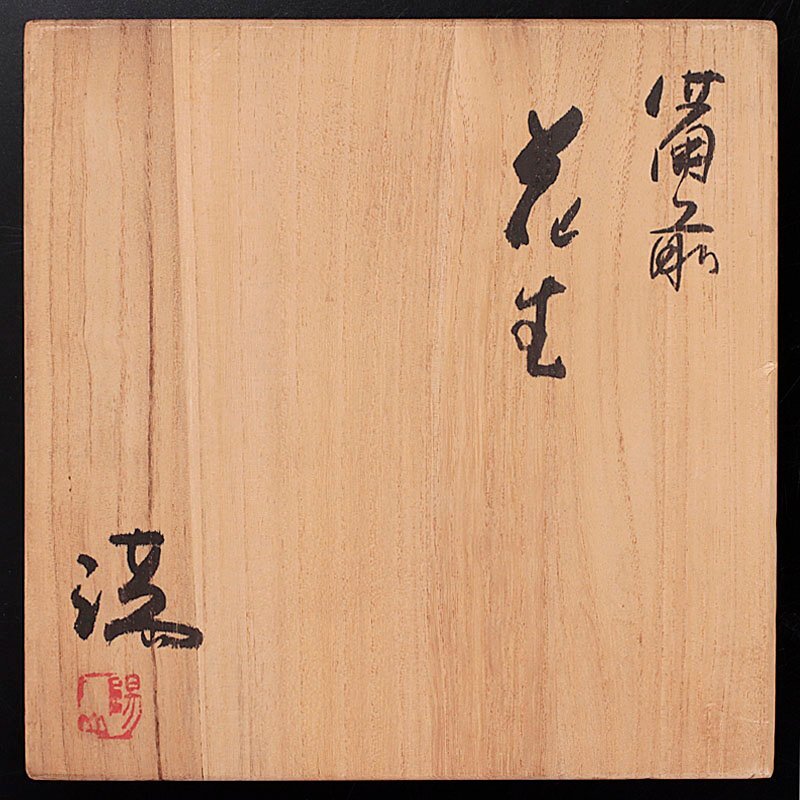 備前
花生
満
陽山